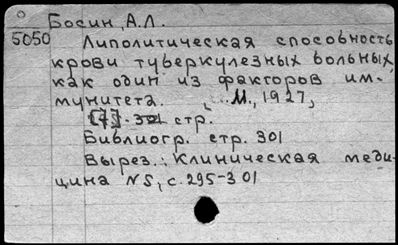 Босин, А.Л.
5050
Липолитическая способность
крови туберкулезных больных,
как один из факторов им-
мунитета. М., 1927,
[7] стр.
Библиогр. стр. 301
Вырез.: Клиническая меди-
цина №5, с. 295-301